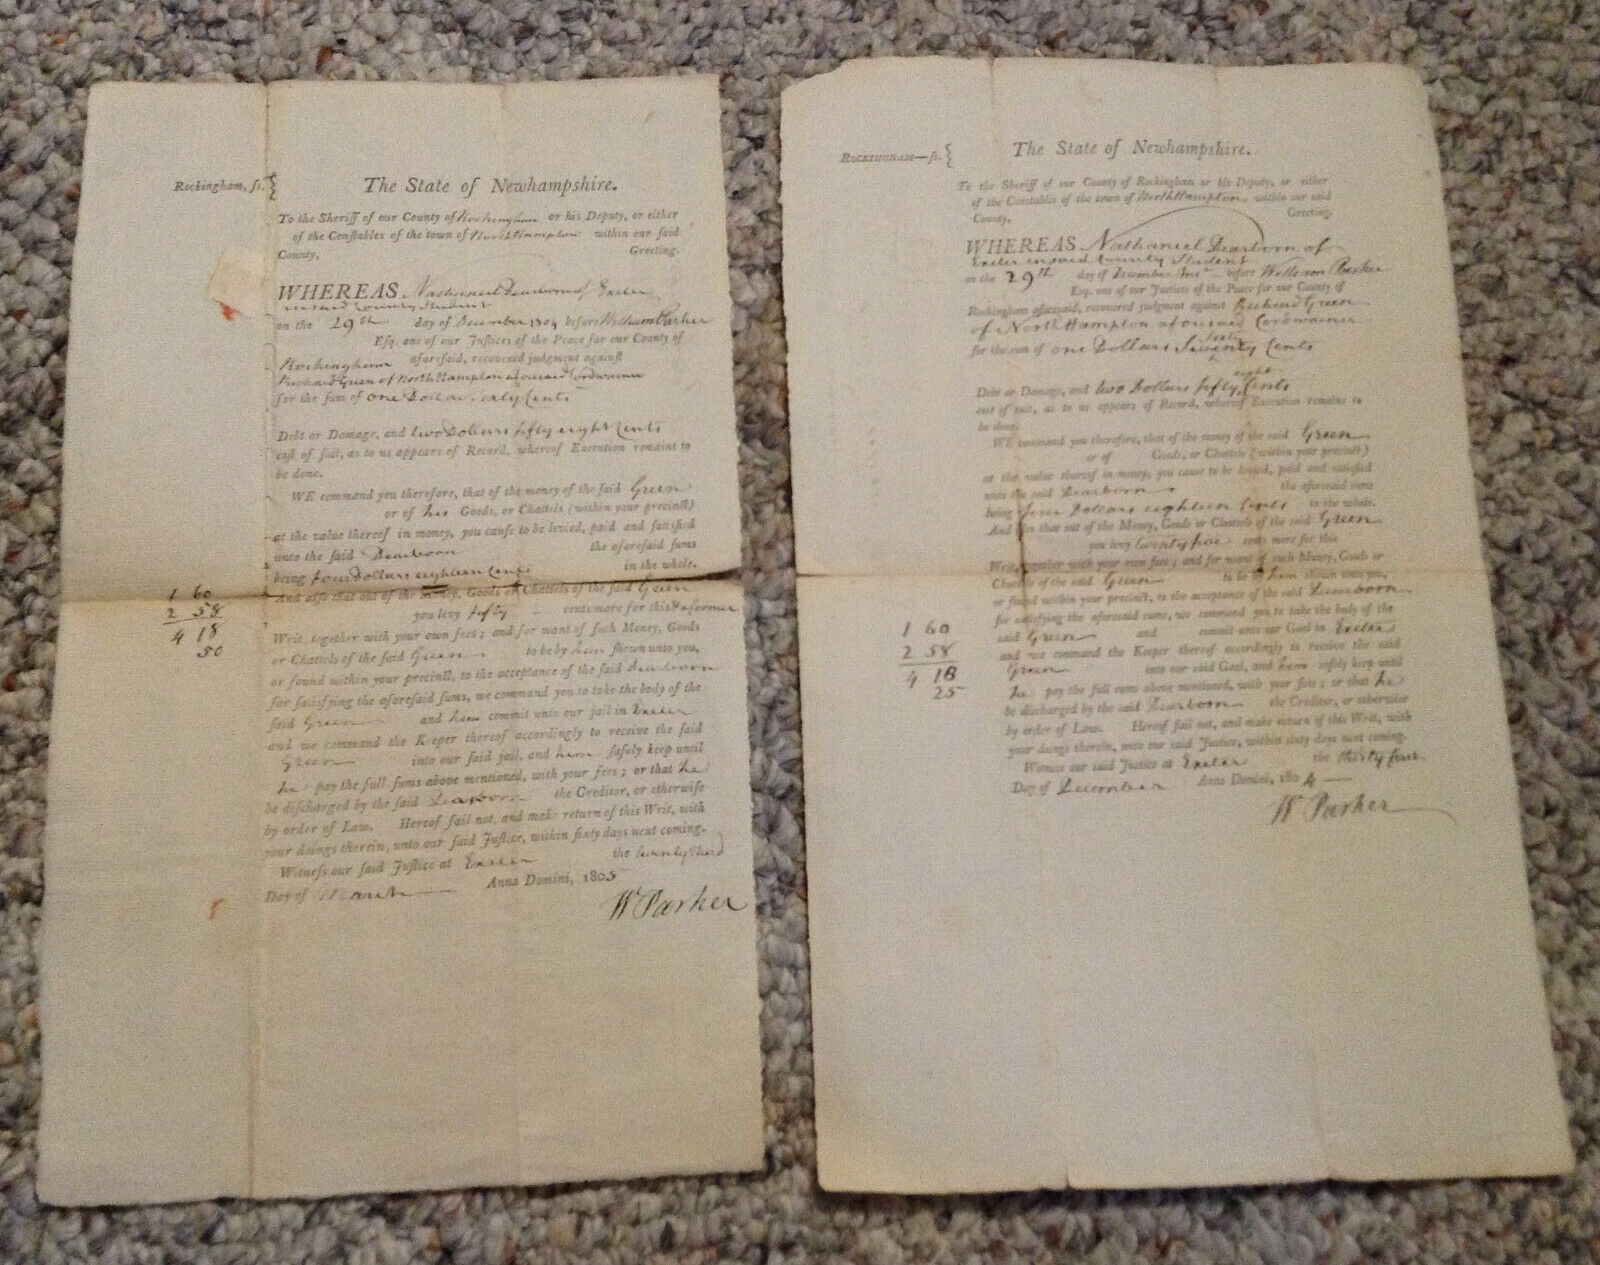 Rockingham, ſs. }
The State of Newhampshire.
To the Sheriff of our County of Rockingham or his Deputy, or either
of the Conſtables of the town of North Hampton within our ſaid
County, Greeting.
WHEREAS Nathaniel Dearborn of Exeter
in said County Student
on the 29th day of December 1804 before William Parker
Eſq. one of our Juſtices of the Peace for our County of
Rockingham aforeſaid, recovered judgment againſt
Richard Green of North Hampton aforesaid Cordwainer
for the ſum of one Dollar sixty Cents
Debt or Damage, and two Dollars fifty eight Cents
coſt of ſuit, as to us appears of Record, whereof Execution remains to
be done.
WE command you therefore, that of the money of the ſaid Green
or of his Goods, or Chattels (within your precinct)
at the value thereof in money, you cauſe to be levied, paid and ſatisfied
unto the ſaid Dearborn the aforeſaid ſums
being four Dollars eighteen Cents in the whole.
And alſo that out of the Money, Goods or Chattels of the ſaid Green
you levy fifty cents more for this & a former
Writ, together with your own fees; and for want of ſuch Money, Goods
or Chattels of the ſaid Green to be by him ſhewn unto you,
or found within your precinct, to the acceptance of the ſaid Dearborn
for ſatisfying the aforeſaid ſums, we command you to take the body of the
ſaid Green and him commit unto our jail in Exeter
and we command the Keeper thereof accordingly to receive the ſaid
Green into our ſaid jail, and him ſafely keep until
he pay the full ſums above mentioned, with your fees; or that he
be diſcharged by the ſaid Dearborn the Creditor, or otherwiſe
by order of Law. Hereof fail not, and make return of this Writ, with
your doings therein, unto our ſaid Juſtice, within ſixty days next coming.
Witneſs our ſaid Juſtice at Exeter the twenty third
Day of March Anna Domini, 1805
Wm Parker
1 60
2 58
4 18
50
ROCKINGHAM—ſs. }
The State of Newhampshire.
To the Sheriff of our County of Rockingham or his Deputy, or either
of the Constables of the town of North Hampton, within our said
County, Greeting.
WHEREAS Nathaniel Dearborn of
Exeter in said County Student
on the 29th day of December before William Parker
Esq. one of our Justices of the Peace for our County of
Rockingham aforesaid, recovered judgment against Richard Green
of North Hampton aforesaid Cordwainer
for the sum of one Dollars Cents
Debt or Damage, and two Dollars fifty eight Cents
cost of suit, as to us appears of Record, whereof Execution remains to
be done.
WE command you therefore, that of the money of the said Green
or of Goods, or Chattels (within your precinct)
at the value thereof in money, you cause to be levied, paid and satisfied
unto the said Dearborn the aforesaid sums
being four Dollars eighteen Cents in the whole.
And also that out of the Money, Goods or Chattels of the said Green
you levy twenty five cents more for this
Writ, together with your own fees; and for want of such Money, Goods or
Chattels of the said Green to be by him shewn unto you,
or found within your precinct, to the acceptance of the said Dearborn
for satisfying the aforesaid sums, we command you to take the body of the
said Green and commit unto our Goal in Exeter
and we command the Keeper thereof accordingly to receive the said
Green into our said Goal, and him safely keep until
he pay the full sums above mentioned, with your fees; or that he
be discharged by the said Dearborn the Creditor, or otherwise
by order of Law. Hereof fail not, and make return of this Writ, with
your doings therein, unto our said Justice, within sixty days next coming.
Witness our said Justice at Exeter the thirty first
Day of December Anna Domini, 1804
Wm Parker
1 60
2 58
4 18
25